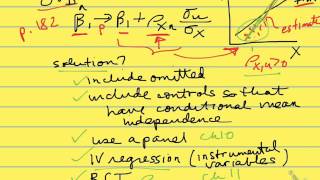 p. 182 β̂₁ →ᵖ β₁ + ρ_Xu σu/σX
estimate
X
ρX,u>0
solution?
✓ include omitted
✓ include controls so that
have conditional mean
independence
✓ use a panel ch10
✓ IV regression (instrumental
variables)
RCT ch 11